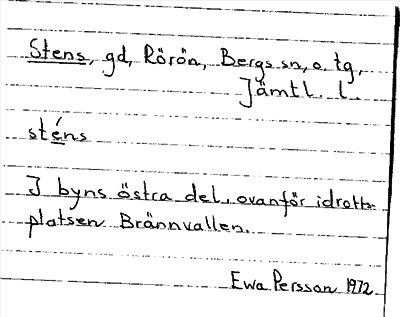 Stens, gd, Rörön, Bergs sn, o. tg,
Jämtl. l.
sténs
I byns östra del, ovanför idrotts-
platsen Brännvallen.
Ewa Persson 1972